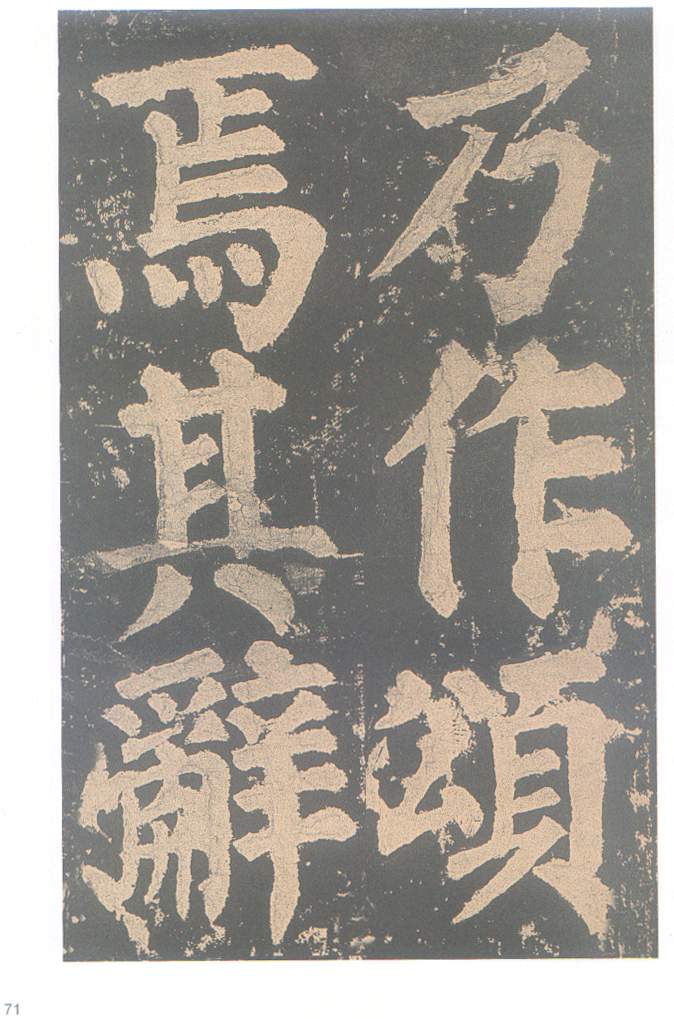 乃作頌
焉其辭
71